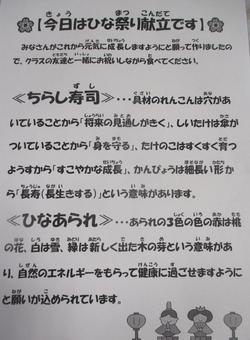 【今日はひな祭り献立です】
みなさんがこれから元気に成長しますようにと願って作りましたの
で、クラスの友達と一緒にお祝いしながら食べてください。
≪ちらし寿司≫…具材のれんこんは穴があ
いていることから「将来の見通しがきく」、しいたけは傘が
ついていることから「身を守る」、たけのこはすくすく育つ
ようすから「すこやかな成長」、かんぴょうは細長い形か
ら「長寿（長生きする）」という意味があります。
≪ひなあられ≫…あられの３色の色の赤は桃
の花、白は雪、緑は新しく出た木の芽という意味があ
り、自然のエネルギーをもらって健康に過ごせますように
と願いが込められています。